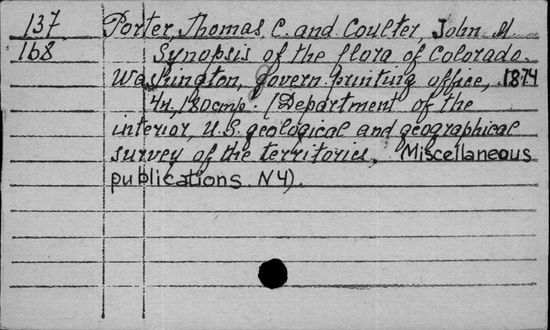 137 Porter, Thomas, C. and Coulter, John M.
168 Synopsis of the flora of Colorado.
Washington, govern. printing office, 1874
180 cmp. (Department of the
interior, U.S. geological and geographical
survey of the territories, Miscellaneous
publications N4).